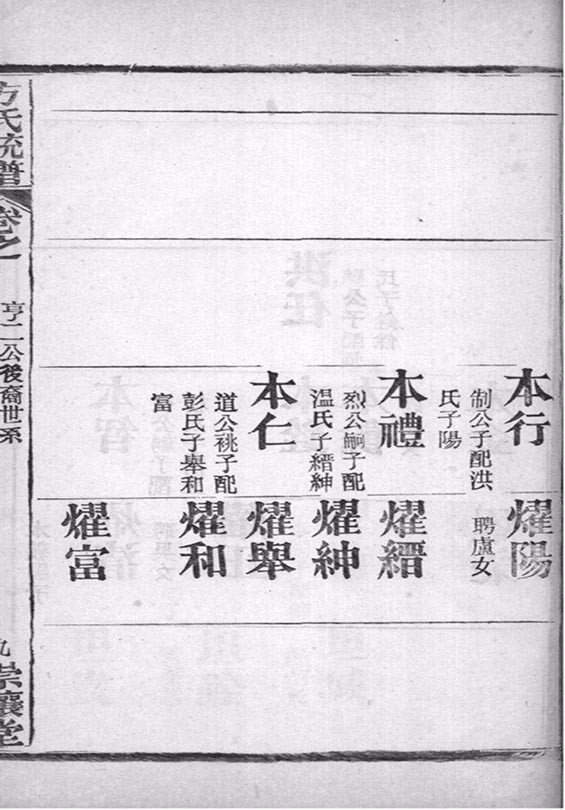 本行
制公子配洪
氏子陽
本禮
烈公嗣子配
温氏子縉紳
本仁
道公祧子配
彭氏子舉和
富
燿陽
聘盧女
燿縉
燿紳
燿舉
燿和
燿富
方氏統譜
卷之一
亨二公後裔世系
九
崇讓堂